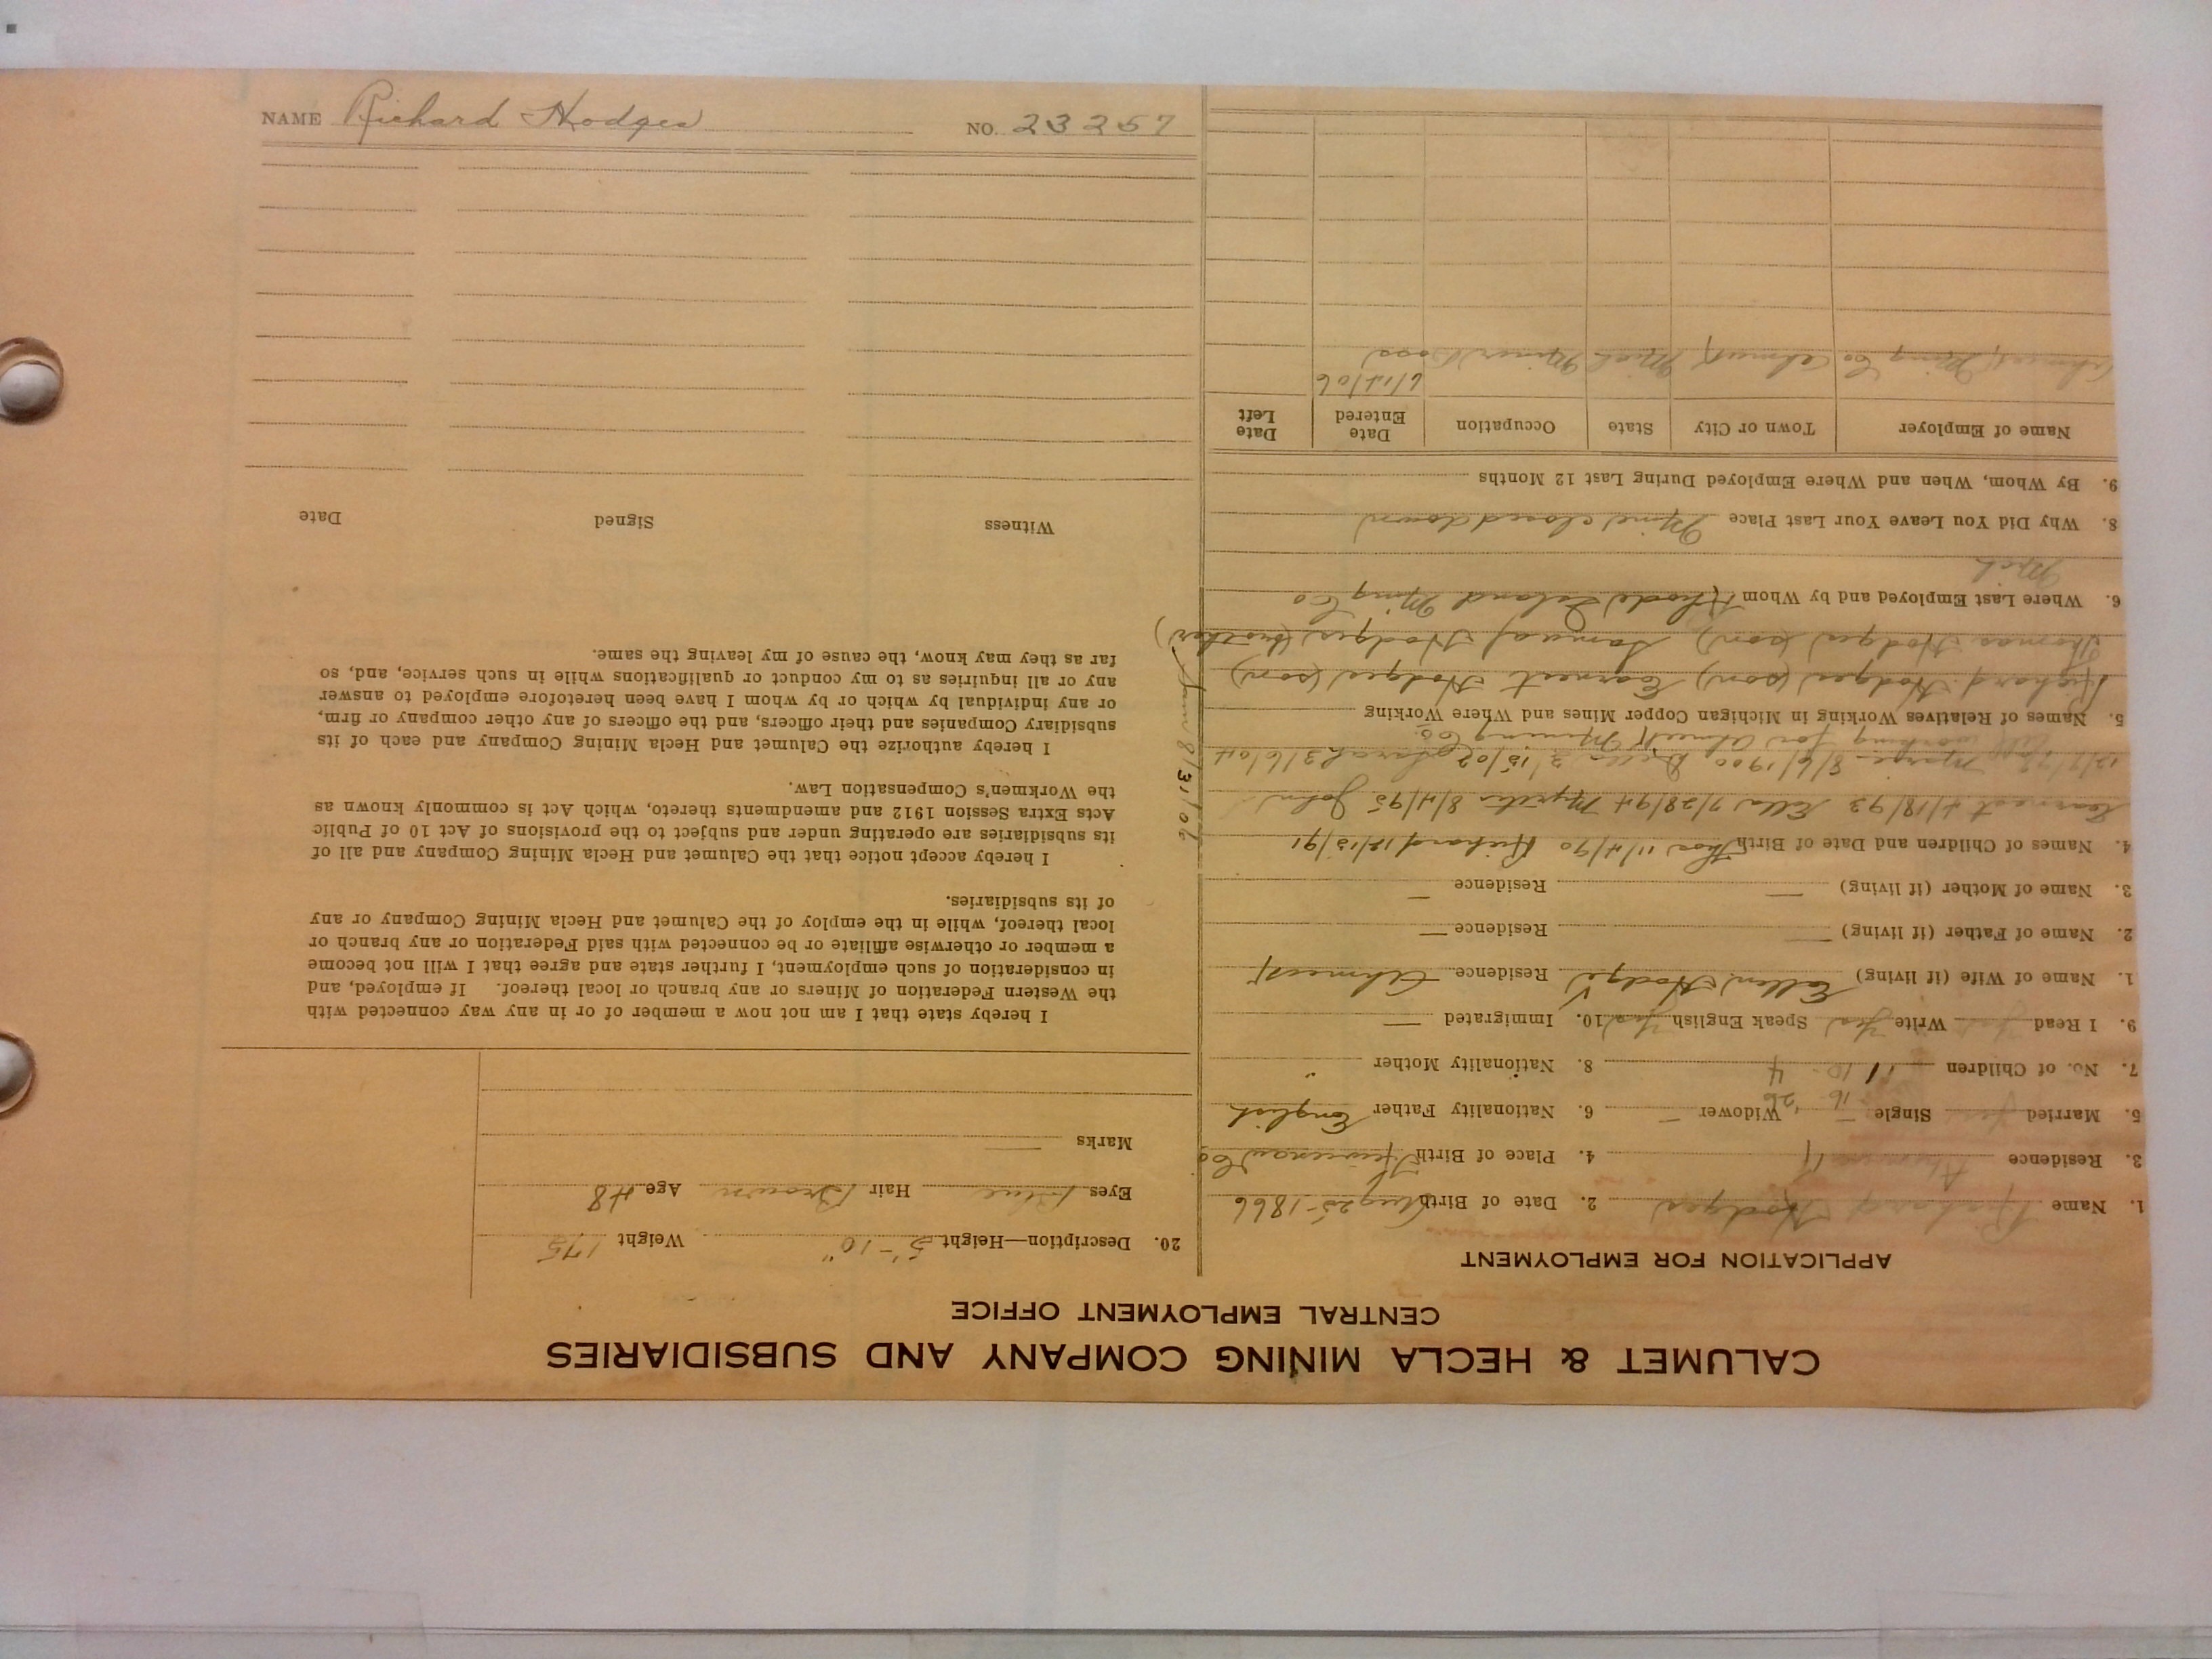 NAME Richard Hodges NO. 23257
CALUMET & HECLA MINING COMPANY AND SUBSIDIARIES
CENTRAL EMPLOYMENT OFFICE
APPLICATION FOR EMPLOYMENT
1. Name Richard Hodges 2. Date of Birth Aug 25-1866
3. Residence Ahmeek 4. Place of Birth Keweenaw Co
5. Married Yes Single — Widower — 6. Nationality Father English
16 26
7. No. of Children 11 10 4 8. Nationality Mother "
9. I Read Yes Write Yes Speak English Yes 10. Immigrated —
1. Name of Wife (if living) Ellen Hodges Residence Ahmeek
2. Name of Father (if living) — Residence —
3. Name of Mother (if living) — Residence —
4. Names of Children and Date of Birth Thos 11/4/90 Richard 12/13/91
Earnest 4/18/93 Ella 7/28/94 Myrtle 8/4/95 John
8/6/1900 Della 2/15/02 Sarah 3/6/04
working for Ahmeek Mining Co.
8/31/06
5. Names of Relatives Working in Michigan Copper Mines and Where Working
Richard Hodges (son) Earnest Hodges (son)
Thomas Hodges (son) Samual Hodges (brother)
6. Where Last Employed and by Whom Rhode Island Mng Co
Mich
8. Why Did You Leave Your Last Place Mine closed down
9. By Whom, When and Where Employed During Last 12 Months
Name of Employer Town or City State Occupation Date Entered Date Left
Ahmeek Mng Co Ahmeek Mich Miner 6/12/06
20. Description—Height 5'-10" Weight 175
Eyes Blue Hair Brown Age 48
Marks —
I hereby state that I am not now a member of or in any way connected with
the Western Federation of Miners or any branch or local thereof. If employed, and
in consideration of such employment, I further state and agree that I will not become
a member or otherwise affiliate or be connected with said Federation or any branch or
local thereof, while in the employ of the Calumet and Hecla Mining Company or any
of its subsidiaries.
I hereby accept notice that the Calumet and Hecla Mining Company and all of
its subsidiaries are operating under and subject to the provisions of Act 10 of Public
Acts Extra Session 1912 and amendments thereto, which Act is commonly known as
the Workmen's Compensation Law.
I hereby authorize the Calumet and Hecla Mining Company and each of its
subsidiary Companies and their officers, and the officers of any other company or firm,
or any individual by which or by whom I have been heretofore employed to answer
any or all inquiries as to my conduct or qualifications while in such service, and, so
far as they may know, the cause of my leaving the same.
Witness Signed Date